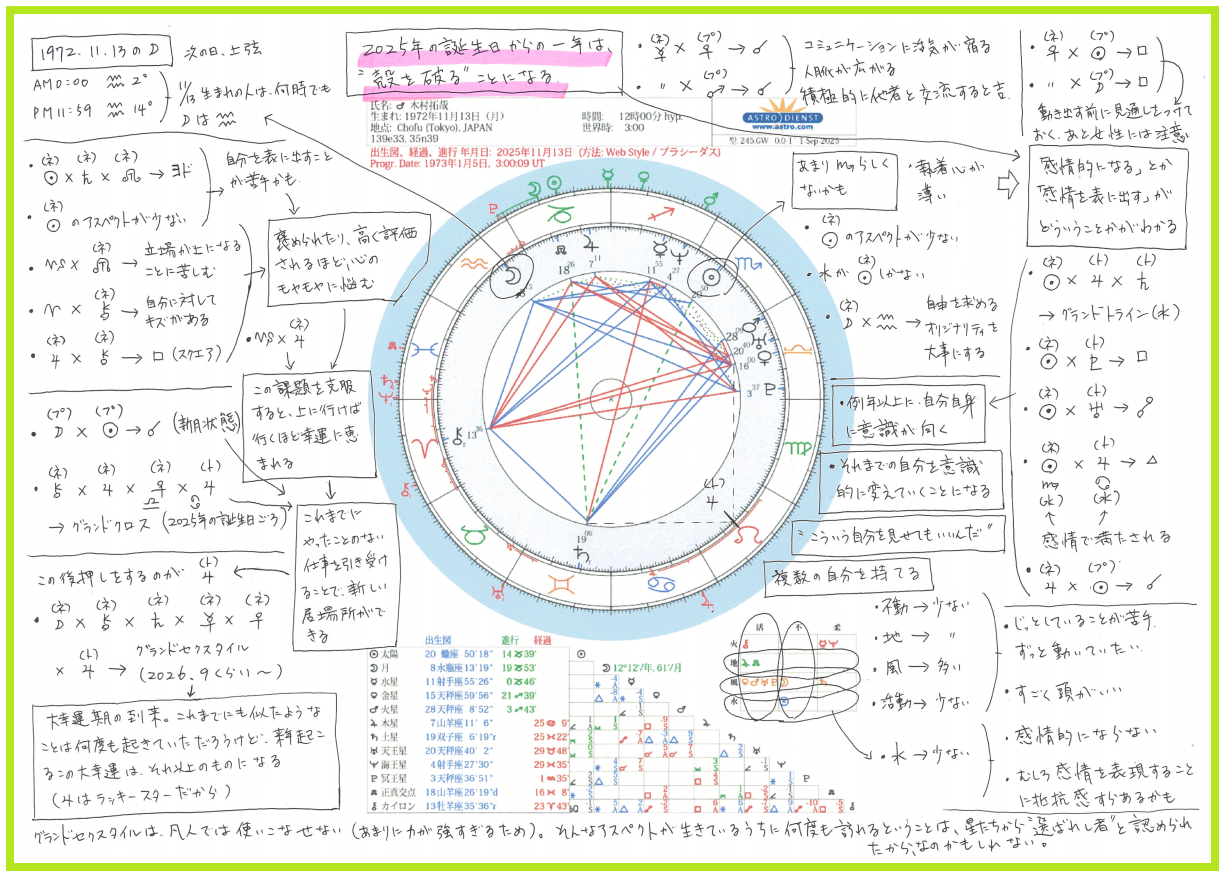 1972.11.13のD
次の日、上弦
AM0:00 ♒ 2°
PM11:59 ♒ 14°
11/13生まれの人は、何時でも
Dは♒
2025年の誕生日からの一年は、
"殻を破る"ことになる。
・(ネ)☿ × (プ)♀ → ☌
・ 〃 × (プ)♂ → ☌
コミュニケーションに活気が宿る
人脈が広がる
積極的に他者と交流すると吉
・(ネ)♀ × (プ)☉ → □
・ 〃 × (プ)D → □
動き出す前に見通しをつけて
おく。あと女性には注意
氏名: ♂ 木村拓哉
生まれ: 1972年11月13日(月)
地点: Chofu (Tokyo), JAPAN
139e33, 35n39
時間: 12時00分 hyp.
世界時: 3:00
ASTRO DIENST
www.astro.com
型: 245.GW 0.0-1 1 Sep 2025
出生図、経過、進行 年月日: 2025年11月13日 (方法: Web Style / プラシーダス)
Progr. Date: 1973年1月5日, 3:00:09 UT
・(ネ)☉ × (ネ)♄ × (ネ)☊ → ヨド
・(ネ)☉ のアスペクトが少ない
自分を表に出すこと
が苦手かも
・♑ × (ネ)☊ → 立場が上になる
ことに苦しむ
・♈ × (ネ)⚷ → 自分に対して
キズがある
・(ネ)♃ × (ネ)⚷ → □ (スクエア)
褒められたり、高く評価
されるほど、心の
もやもやに悩む
・♑ × (ネ)♃
この課題を克服
すると、上に行けば
行くほど幸運に恵
まれる
・(プ)D × (プ)☉ → ☌ (新月状態)
・(ネ)⚷ × (ネ)♃ × (ネ)♀ × (ト)♃
♎ ♋
→ グランドクロス (2025年の誕生日ごろ)
これまでに
やったことのない
仕事を引き受け
ることで、新しい
居場所がで
きる
この後押しをするのが (ト)♃
(ネ)D × (ネ)⚷ × (ネ)♄ × (ネ)☿ × (ネ)♀
× (ト)♃ → グランドセクスタイル
(2026.9くらい〜)
大幸運期の到来。これまでにも似たような
ことは何度も起きていただろうけど、来年起こ
るこの大幸運は、それ以上のものになる
(♃はラッキースターだから)
あまり♏らしく
ないかも
・執着心が
薄い
・(ネ)☉ のアスペクトが少ない
・水が (ネ)☉ しかない
・(ネ)D × ♒ → 自由を求める
オリジナリティを
大事にする
「感情的になる」とか
「感情を表に出す」が
どういうことかがわかる
・(ネ)☉ × (ト)♃ × (ト)♄
→ グランドトライン(水)
・(ネ)☉ × (ト)♇ → □
・(ネ)☉ × (ト)♅ → ☍
・(ネ)☉ × (ト)♃ → △
♏ ♋
(水) (水)
↑ ↑
感情で満たされる
・(ト)♃ × (プ)☉ → ☌
・例年以上に、自分自身
に意識が向く
・それまでの自分を意識
的に変えていくことになる
"こういう自分を見せてもいいんだ"
複数の自分を持てる
(ト)♃
18 26
7 11
11 55
4 27
20 50
28 09
20 40
16 00
3 37
13 36
19 06
出生図 進行 経過
☉ 太陽 20 蠍座 50'18" 14♑39'
☽ 月 8 水瓶座 13'19" 19♑53'
☿ 水星 11 射手座 55'26" 0♑46'
♀ 金星 15 天秤座 59'56" 21♐39'
♂ 火星 28 天秤座 8'52" 3♐43'
♃ 木星 7 山羊座 11' 6" 25♋ 9'
♄ 土星 19 双子座 6'19"r 25♓22'
♅ 天王星 20 天秤座 40' 2" 29♉48'
♆ 海王星 4 射手座 27'30" 29♓35'
♇ 冥王星 3 天秤座 36'51" 1♒35'
☊ 正真交点 18 山羊座 26'19"d 16♓ 8'
⚷ カイロン 13 牡羊座 35'36"r 23♈43'
☽ 12°12'/年, 61'/月
活 不 柔
火
地
風
水
・不動 → 少ない
・地 → 〃
・風 → 多い
・活動 → 少ない
・水 → 少ない
・じっとしていることが苦手、
ずっと動いていたい
・すごく頭がいい
・感情的にならない
・むしろ感情を表現すること
に抵抗感すらあるかも
グランドセクスタイルは、凡人では使いこなせない(あまりに力が強すぎるため)。そんなアスペクトが生きているうちに何度も訪れるということは、星たちから"選ばれし者"と認められ
たから、なのかもしれない。